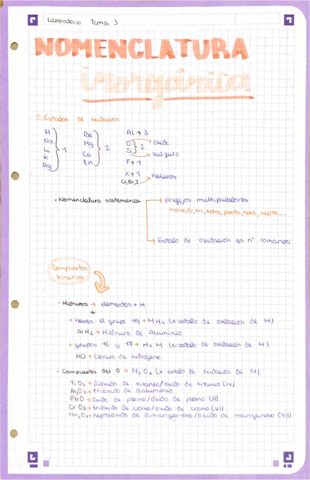 Laboratorio Tema 3
NOMENCLATURA
inorgánica
Estados de oxidación
H
Na
Li
K
Ag
1
Be
Mg
Ca
Zn
2
Al → 3
O
S
2
óxido
sulfuro
F → 1
X → 1
Cl, Br, I
haluros
• Nomenclatura sistemática
→ prefijos multiplicadores
mono, di, tri, tetra, penta, hexa, hepta...
→ Estado de oxidación en nº romanos
Compuestos
binarios
• Hidruros → elementos + H
→ hasta el grupo 15 → MHx (x: estado de oxidación de M)
AlH3 → Hidruro de Aluminio
→ grupos 16 y 17 → HxM (x: estado de oxidación de M)
HCl → Cloruro de hidrógeno
• Compuestos del O → M2Ox (x: estado de oxidación de M)
TiO2 → dióxido de titanio/óxido de titanio (IV)
Al2O3 → trióxido de dialuminio
PbO → óxido de plomo/óxido de plomo (II)
CrO3 → trióxido de cromo/óxido de cromo (VI)
Mn2O7 → heptaóxido de dimanganeso/óxido de manganeso (VII)